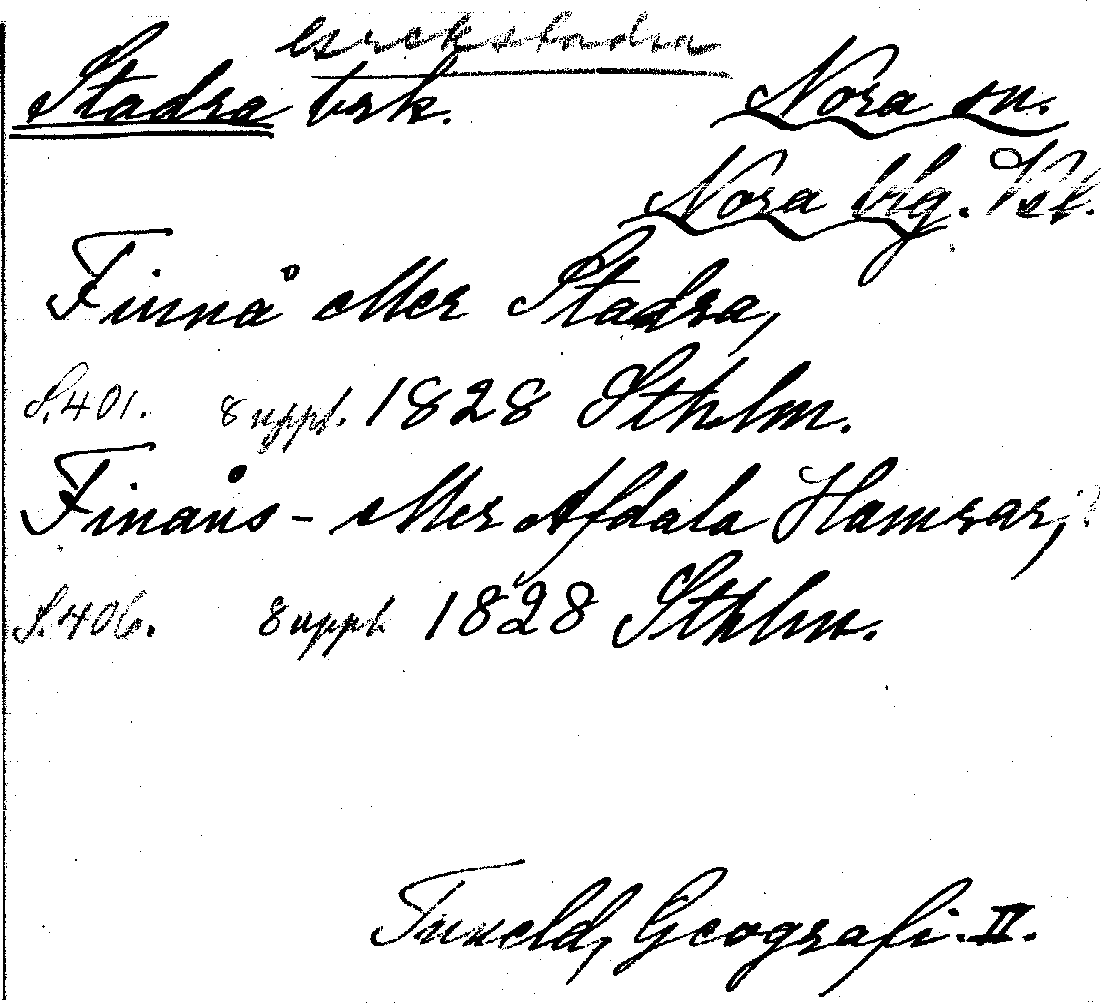 Stadra brk. Nora sn.
Nora brg. Vstl.
Finnå eller Stadra,
S. 401. 8 uppl. 1828 Sthlm.
Finåns- eller Afdala Hamrar,
S. 406. 8 uppl 1828 Sthlm.
Tuneld, Geografi. II.